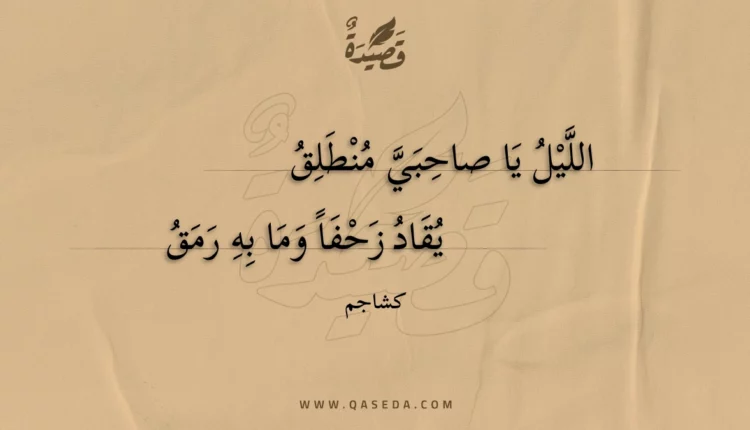 قَصِيْدَةٌ
اللَّيْلُ يَا صاحِبَيَّ مُنْطَلِقُ
يُقَادُ زَحْفَاً وَمَا بِهِ رَمَقُ
كشاجم
WWW.QASEDA.COM